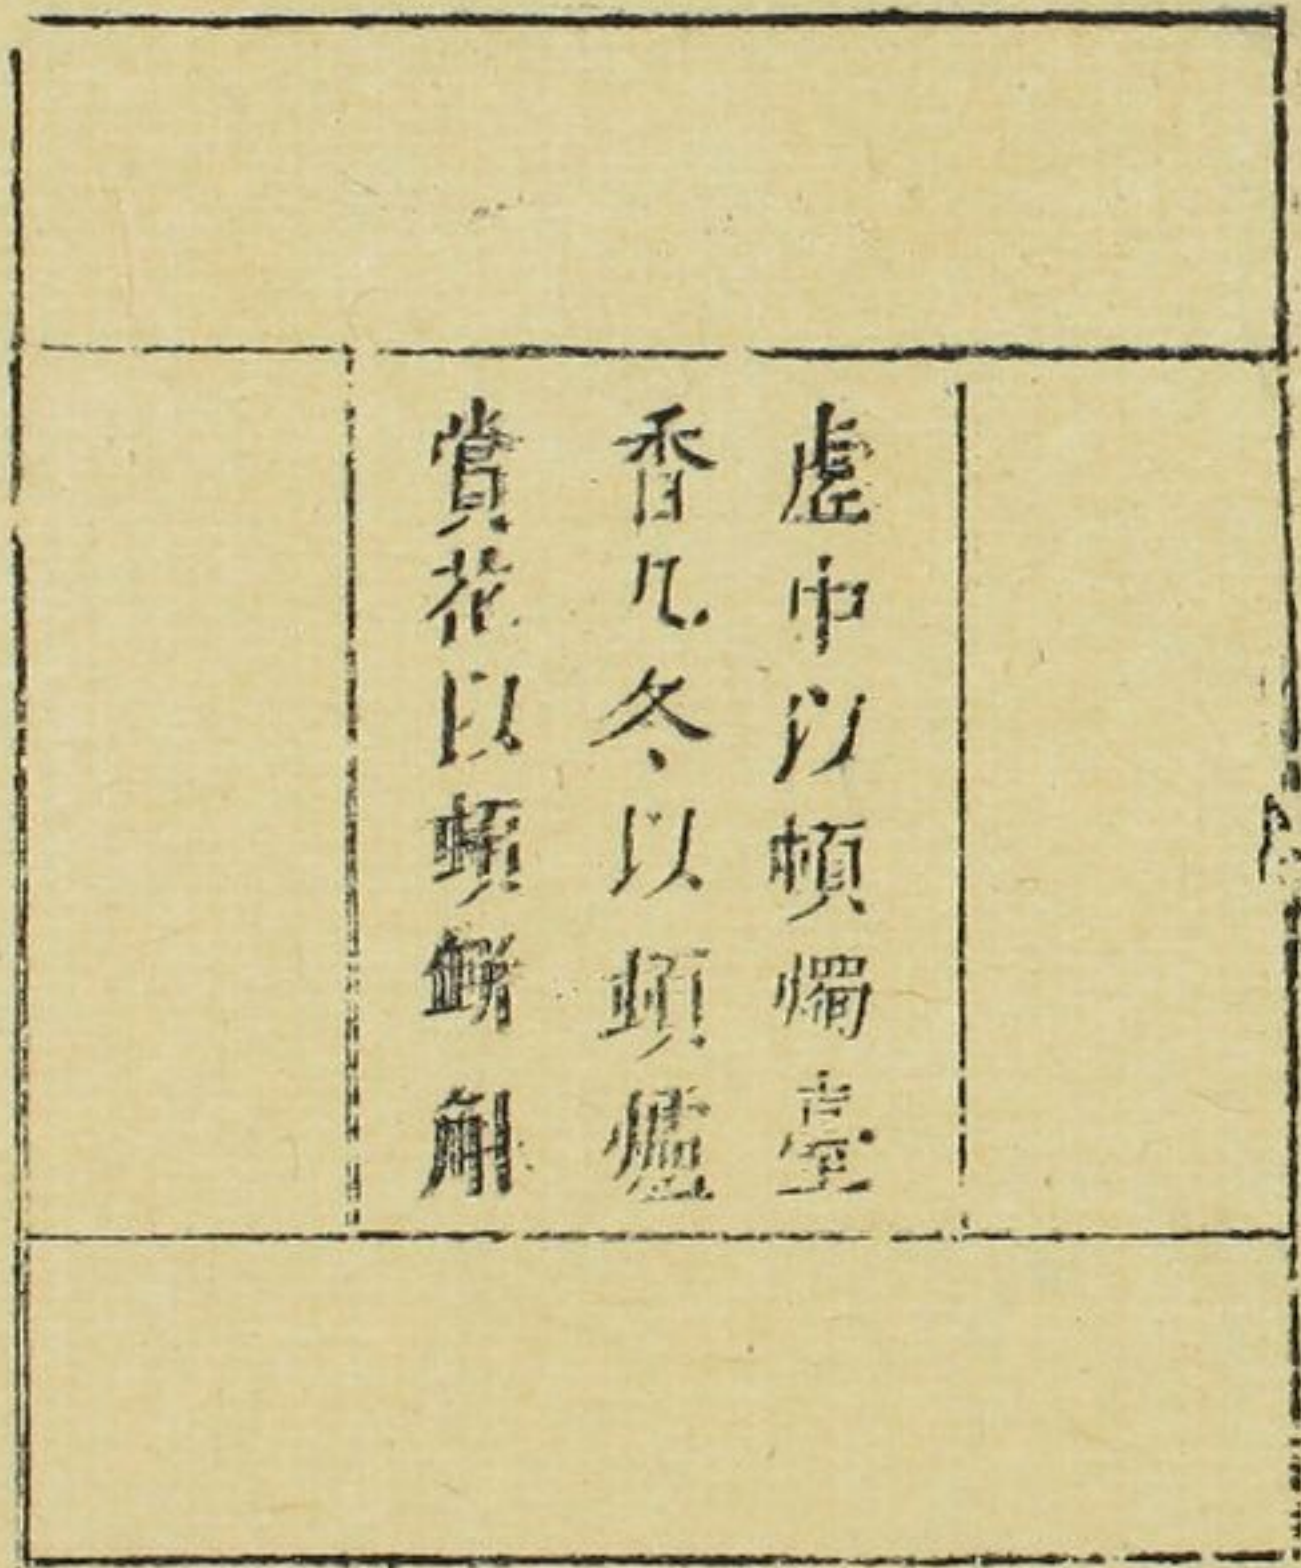 虛中以頓燭臺
香几冬以頓爐
賞花以頓鉼斛